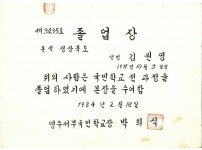 제3235호 졸업장
본적 경상북도
성명 김원영
위의 사람은 국민학교 전 과정을
졸업하였기에 본장을 수여함
1984년 2월 18일
영주서부국민학교장 박희